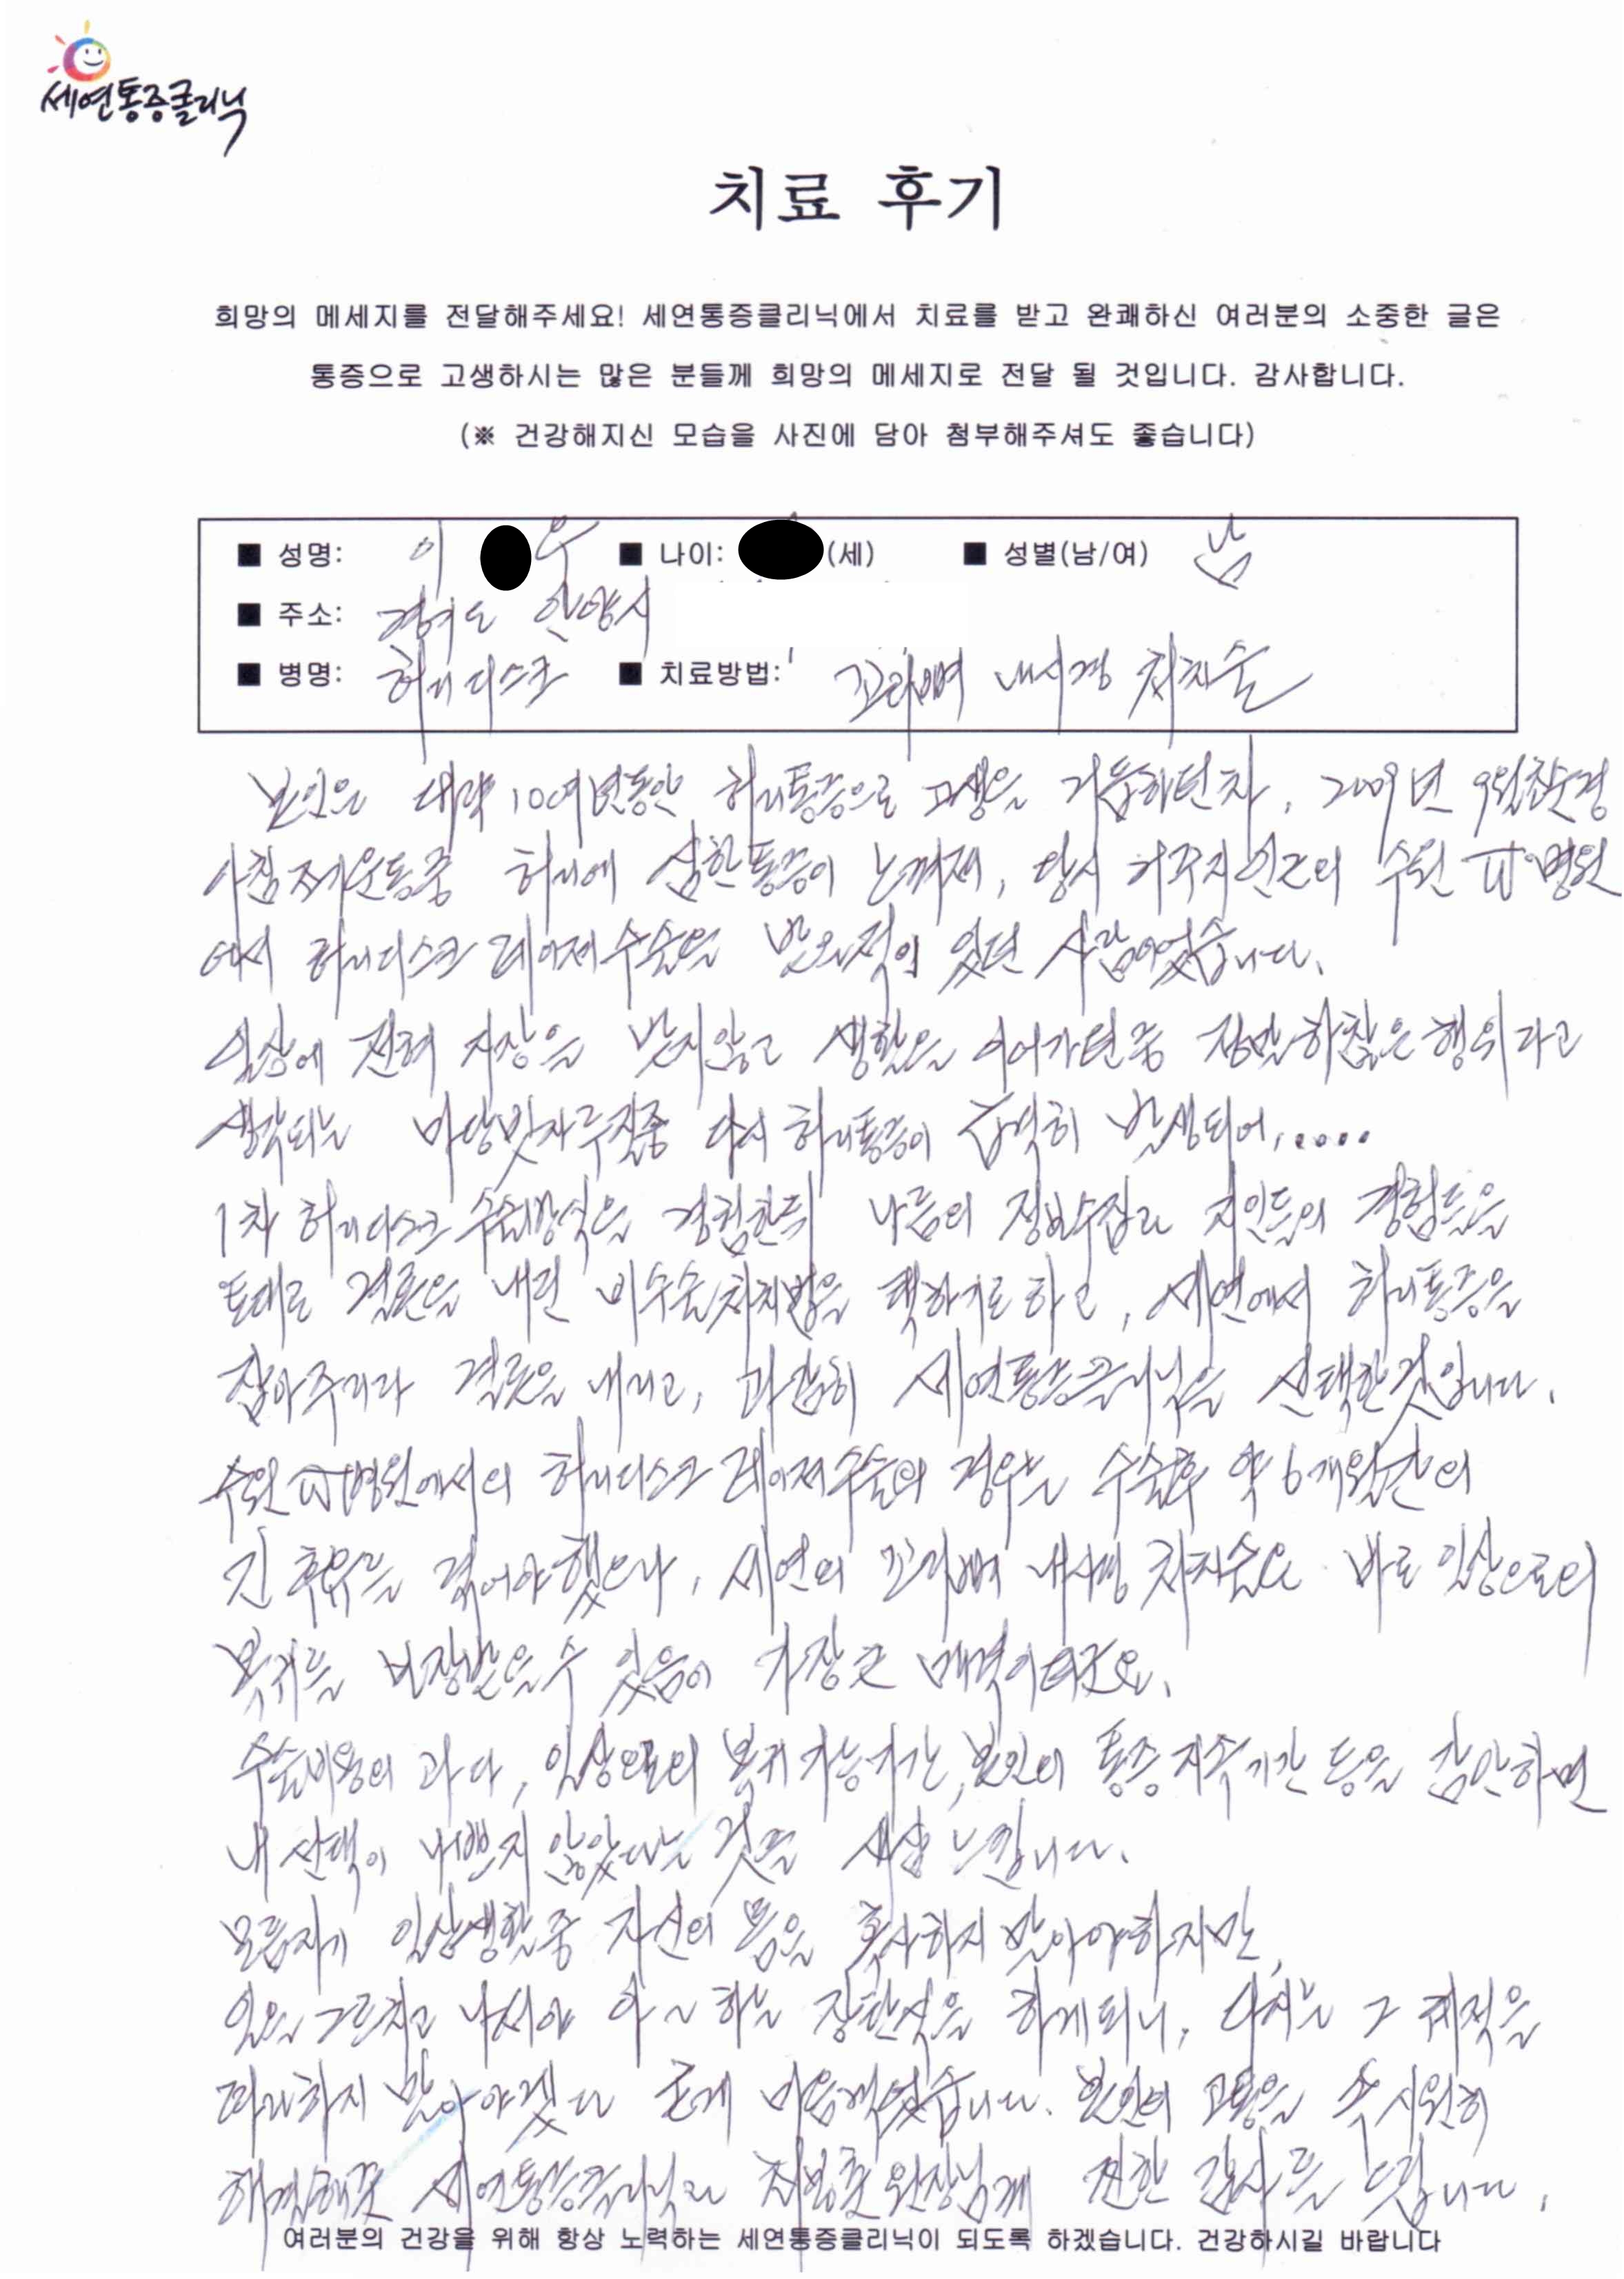 세연통증클리닉
치료 후기
희망의 메세지를 전달해주세요! 세연통증클리닉에서 치료를 받고 완쾌하신 여러분의 소중한 글은
통증으로 고생하시는 많은 분들께 희망의 메세지로 전달 될 것입니다. 감사합니다.
(※ 건강해지신 모습을 사진에 담아 첨부해주셔도 좋습니다)
■ 성명: 이 우 ■ 나이: (세) ■ 성별(남/여) 남
■ 주소: 경기도 안양시
■ 병명: 허리디스크 ■ 치료방법: 꼬리뼈 내시경 처치술
본인은 대략 10여년동안 허리통증으로 고생을 거듭하던차, 2009년 9월초순경
아침 운동중 허리에 심한통증이 느껴져, 당시 거주지인근의 수원 병원
에서 허리디스크 레이저수술을 받은적이 있던 사람이었습니다.
일상에 전혀 지장을 받지않고 생활을 이어가던중 정말하찮은행위라고
생각되는 마당빗자루질중 다시 허리통증이 급격히 발생되어,.....
1차 허리디스크 수술방식을 경험한뒤 나름의 정보수집과 지인들의 경험등을
토대로 결론을 내린 비수술처치법을 택하기로하고, 세연에서 허리통증을
잡아주리라 결론을 내리고, 과감히 세연통증클리닉을 선택한것입니다.
수원 병원에서의 허리디스크 레이저수술의 경우는 수술후 약 6개월간의
긴 후유를 겪어야했으나, 세연의 꼬리뼈 내시경 처치술은 바로 일상으로의
복귀를 보장받을수 있음이 가장큰 매력이더군요.
수술비용의 과다, 일상으로의 복귀가능기간, 본인의 통증지속기간 등을 감안하면
내 선택이 나쁘지 않았다는 것을 새삼 느낍니다.
모름지기 일상생활중 자신의 몸을 혹사하지 말아야하지만,
일을 그르치고 나서야 아~ 하는 장탄식을 하게되니, 다시는 그 궤적을
따라하지 말아야겠다 굳게 마음먹었습니다. 본인의 고통을 속시원히
해결해준 세연통증클리닉과 원장님께 진한 감사를 드립니다.
여러분의 건강을 위해 항상 노력하는 세연통증클리닉이 되도록 하겠습니다. 건강하시길 바랍니다